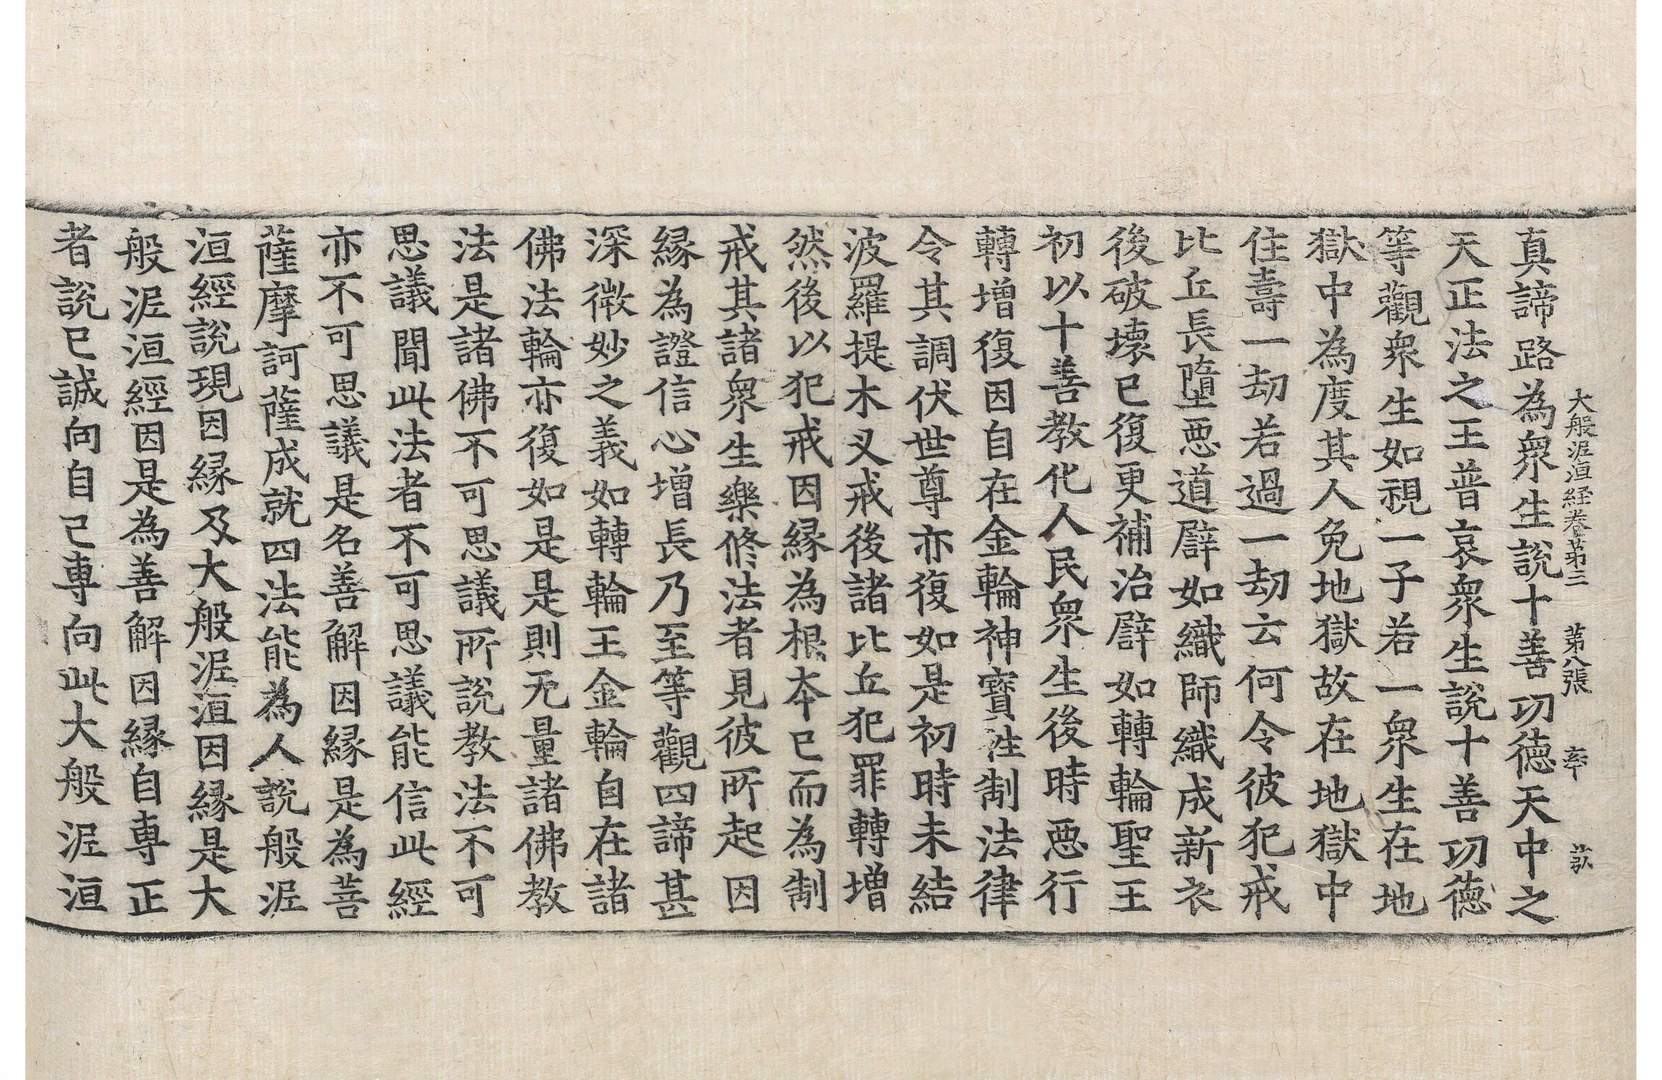 大般泥洹経巻第三　第八張
真諦路為衆生説十善功徳天中之
天正法之王普哀衆生説十善功徳
等觀衆生如視一子若一衆生在地
獄中為度其人免地獄故在地獄中
住壽一劫若過一劫云何令彼犯戒
比丘長墮惡道譬如織師織成新衣
後破壞已復更補治譬如轉輪聖王
初以十善教化人民衆生後時惡行
轉增復因自在金輪神寶法制法律
令其調伏世尊亦復如是初時未結
波羅提木叉戒後諸比丘犯罪轉增
然後以犯戒因縁為根本已而為制
戒其諸衆生樂修法者見彼所起因
縁為證信心增長乃至等觀四諦甚
深微妙之義如轉輪王金輪自在諸
佛法輪亦復如是是則无量諸佛教
法是諸佛不可思議所説教法不可
思議聞此法者不可思議能信此經
亦不可思議是名善解因縁是為菩
薩摩訶薩成就四法能為人説般泥
洹經説現因縁及大般泥洹因縁是大
般泥洹經因是為善解因縁自専正
者説已誠向自己専向此大般泥洹